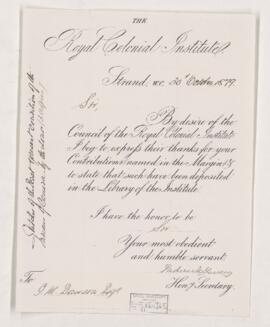 THE
Royal Colonial Institute,
Strand, W.C. 30th October 1879.
Sir,
By desire of the
Council of the Royal Colonial Institute
I beg to express their thanks for your
Contributions named in the Margin &
to state that such have been deposited
in the Library of the Institute.
I have the honor to be
Sir
Your most obedient
and humble servant
Hony. Secretary.
To
Dawson Esqre
Sketches of the Past & present condition of the